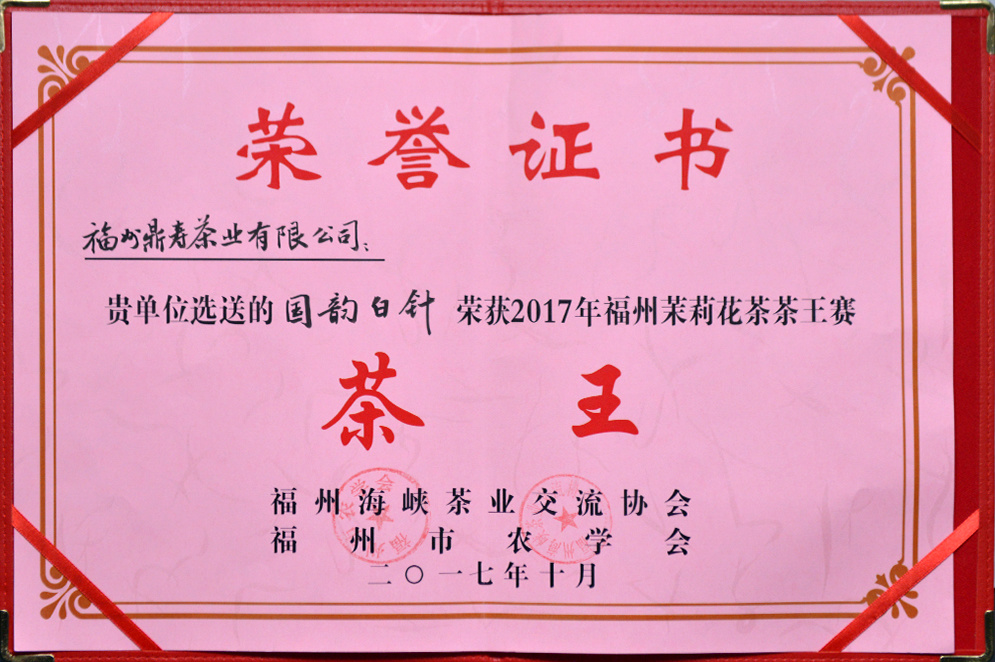 荣誉证书
福州鼎寿茶业有限公司：
贵单位选送的国韵白针 荣获2017年福州茉莉花茶茶王赛
茶王
福州海峡茶业交流协会
福州市农学会
二〇一七年十月